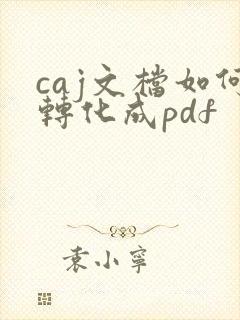 caj文檔如何
轉化成pdf
袁小寧